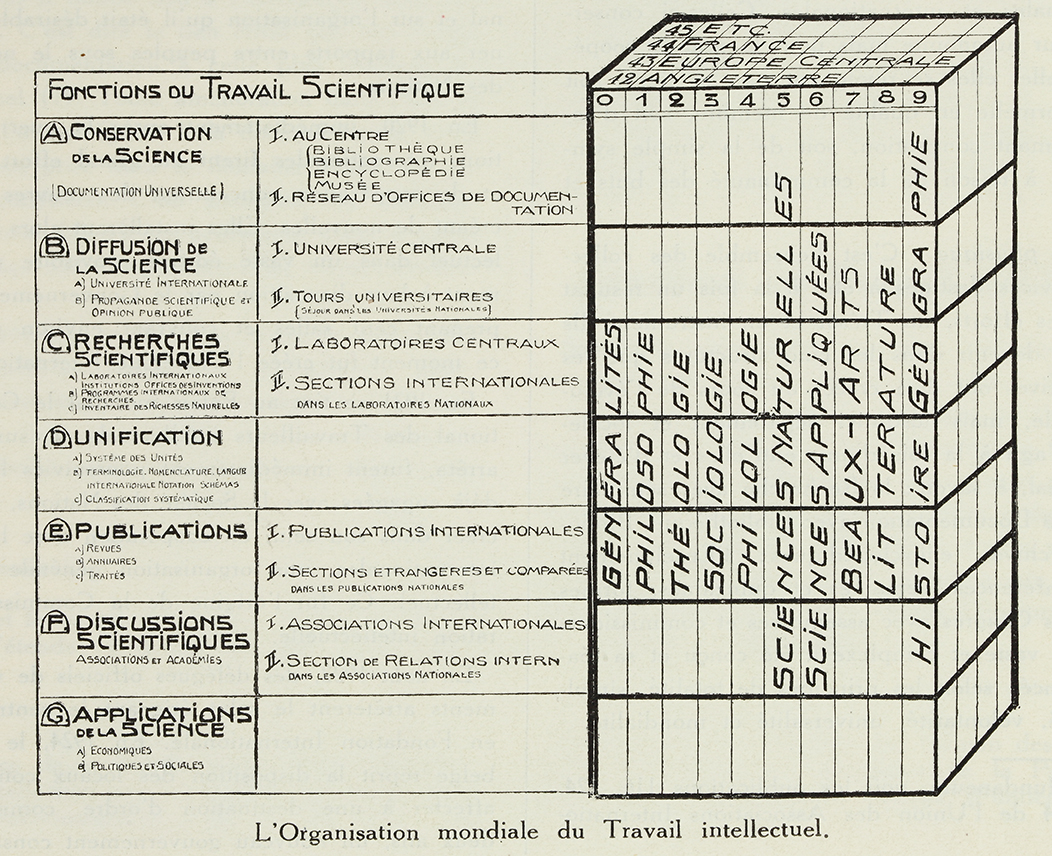 45 ETC.
44 FRANCE
43 EUROPE CENTRALE
42 ANGLETERRE
FONCTIONS DU TRAVAIL SCIENTIFIQUE
0 1 2 3 4 5 6 7 8 9
A CONSERVATION
DE LA SCIENCE
(DOCUMENTATION UNIVERSELLE)
I. AU CENTRE
BIBLIOTHÈQUE
BIBLIOGRAPHIE
ENCYCLOPÉDIE
MUSÉE
II. RÉSEAU D'OFFICES DE DOCUMEN-
TATION
B DIFFUSION DE
LA SCIENCE
A) UNIVERSITÉ INTERNATIONALE
B) PROPAGANDE SCIENTIFIQUE ET
OPINION PUBLIQUE
I. UNIVERSITÉ CENTRALE
II. TOURS UNIVERSITAIRES
(SÉJOUR DANS LES UNIVERSITÉS NATIONALES)
C RECHERCHES
SCIENTIFIQUES
A) LABORATOIRES INTERNATIONAUX
INSTITUTIONS OFFICES DES INVENTIONS
B) PROGRAMMES INTERNATIONAUX DE
RECHERCHES.
C) INVENTAIRE DES RICHESSES NATURELLES
I. LABORATOIRES CENTRAUX
II. SECTIONS INTERNATIONALES
DANS LES LABORATOIRES NATIONAUX
D UNIFICATION
A) SYSTÈME DES UNITÉS
B) TERMINOLOGIE. NOMENCLATURE. LANGUE
INTERNATIONALE NOTATION SCHÉMAS
C) CLASSIFICATION SYSTÉMATIQUE
E PUBLICATIONS
A) REVUES
B) ANNUAIRES
C) TRAITÉS
I. PUBLICATIONS INTERNATIONALES
II. SECTIONS ETRANGERES ET COMPARÉES
DANS LES PUBLICATIONS NATIONALES
F DISCUSSIONS
SCIENTIFIQUES
ASSOCIATIONS ET ACADÉMIES
I. ASSOCIATIONS INTERNATIONALES
II. SECTION DE RELATIONS INTERN
DANS LES ASSOCIATIONS NATIONALES
G APPLICATIONS
DE LA SCIENCE
A) ECONOMIQUES
B) POLITIQUES ET SOCIALES
GÉNÉRALITÉS
PHILOSOPHIE
THÉOLOGIE
SOCIOLOGIE
PHILOLOGIE
SCIENCES NATURELLES
SCIENCES APPLIQUÉES
BEAUX-ARTS
LITTERATURE
HISTOIRE GÉOGRAPHIE
L'Organisation mondiale du Travail intellectuel.